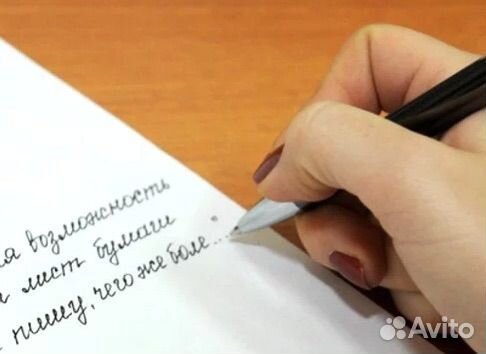 я возможность
и лист бумаги
пишу, чего же боле...
Avito